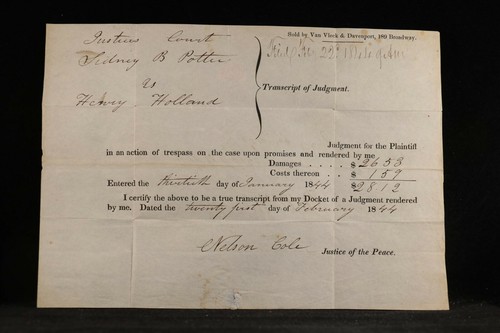 Sold by Van Vleck & Davenport, 189 Broadway.
Justices Court
Sidney B Potter
vs
Hervey Holland
Transcript of Judgment.
Judgment for the Plaintiff
in an action of trespass on the case upon promises and rendered by me
Damages . . . . $ 2653
Costs thereon . $ 159
Entered the thirtieth day of January 1844 $ 2812
I certify the above to be a true transcript from my Docket of a Judgment rendered
by me. Dated the twenty first day of February 1844
Nelson Cole Justice of the Peace.